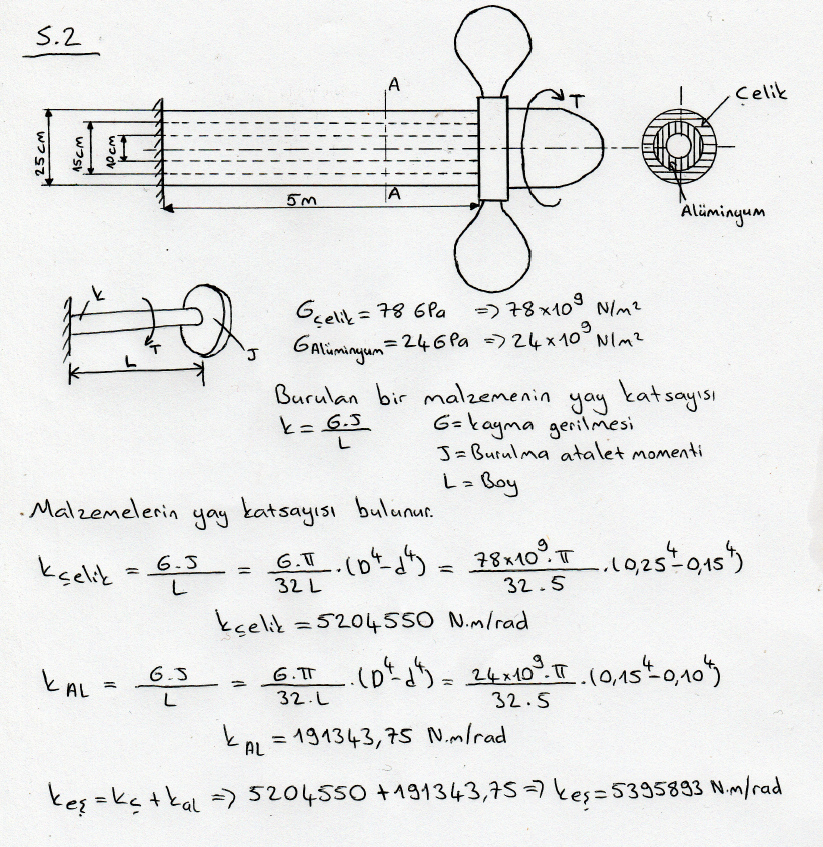 S.2
A
T
Çelik
25cm
15cm
10cm
A
5m
Alüminyum
k
T
J
L
Gçelik = 78 GPa => 78x10⁹ N/m²
GAlüminyum = 24GPa => 24x10⁹ N/m²
Burulan bir malzemenin yay katsayısı
k = G.J/L
G = kayma gerilmesi
J = Burulma atalet momenti
L = Boy
.Malzemelerin yay katsayısı bulunur.
kçelik = G.J/L = G.π/32L .(D⁴-d⁴) = 78x10⁹.π/32.5 .(0,25⁴-0,15⁴)
kçelik = 5204550 N.m/rad
kAL = G.J/L = G.π/32.L .(D⁴-d⁴) = 24x10⁹.π/32.5 .(0,15⁴-0,10⁴)
kAL = 191343,75 N.m/rad
keş = kç + kal => 5204550 + 191343,75 => keş = 5395893 N.m/rad